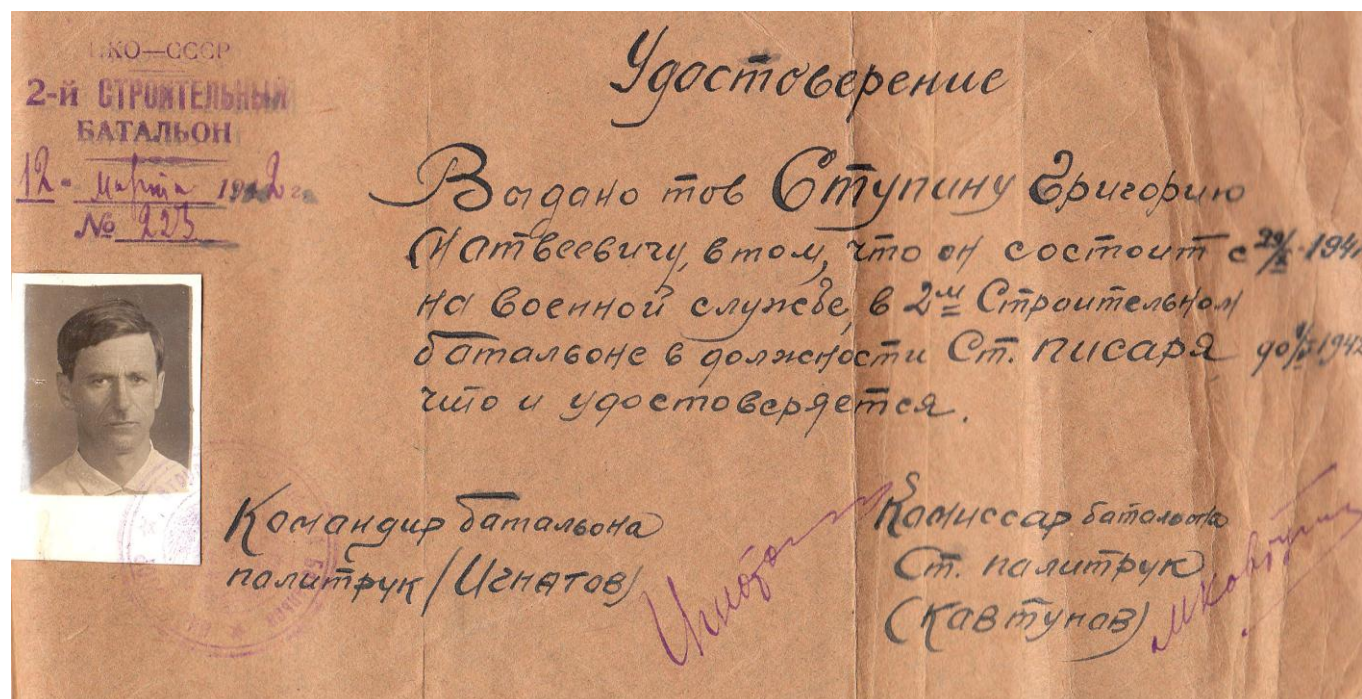 НКО—СССР
2-й СТРОИТЕЛЬНЫЙ
БАТАЛЬОН
12 " Марта 1942 г.
№ 223
Удостоверение
Выдано тов Ступину Григорию
Матвеевичу, в том, что он состоит с 29/X-1941
на военной службе, в 2м Строительном
батальоне в должности Ст. писаря до 1942
что и удостоверяется.
Командир батальона
палитрук (Игнатов)
Игнатов
Комиссар батальона
Ст. палитрук
(Кавтунов)